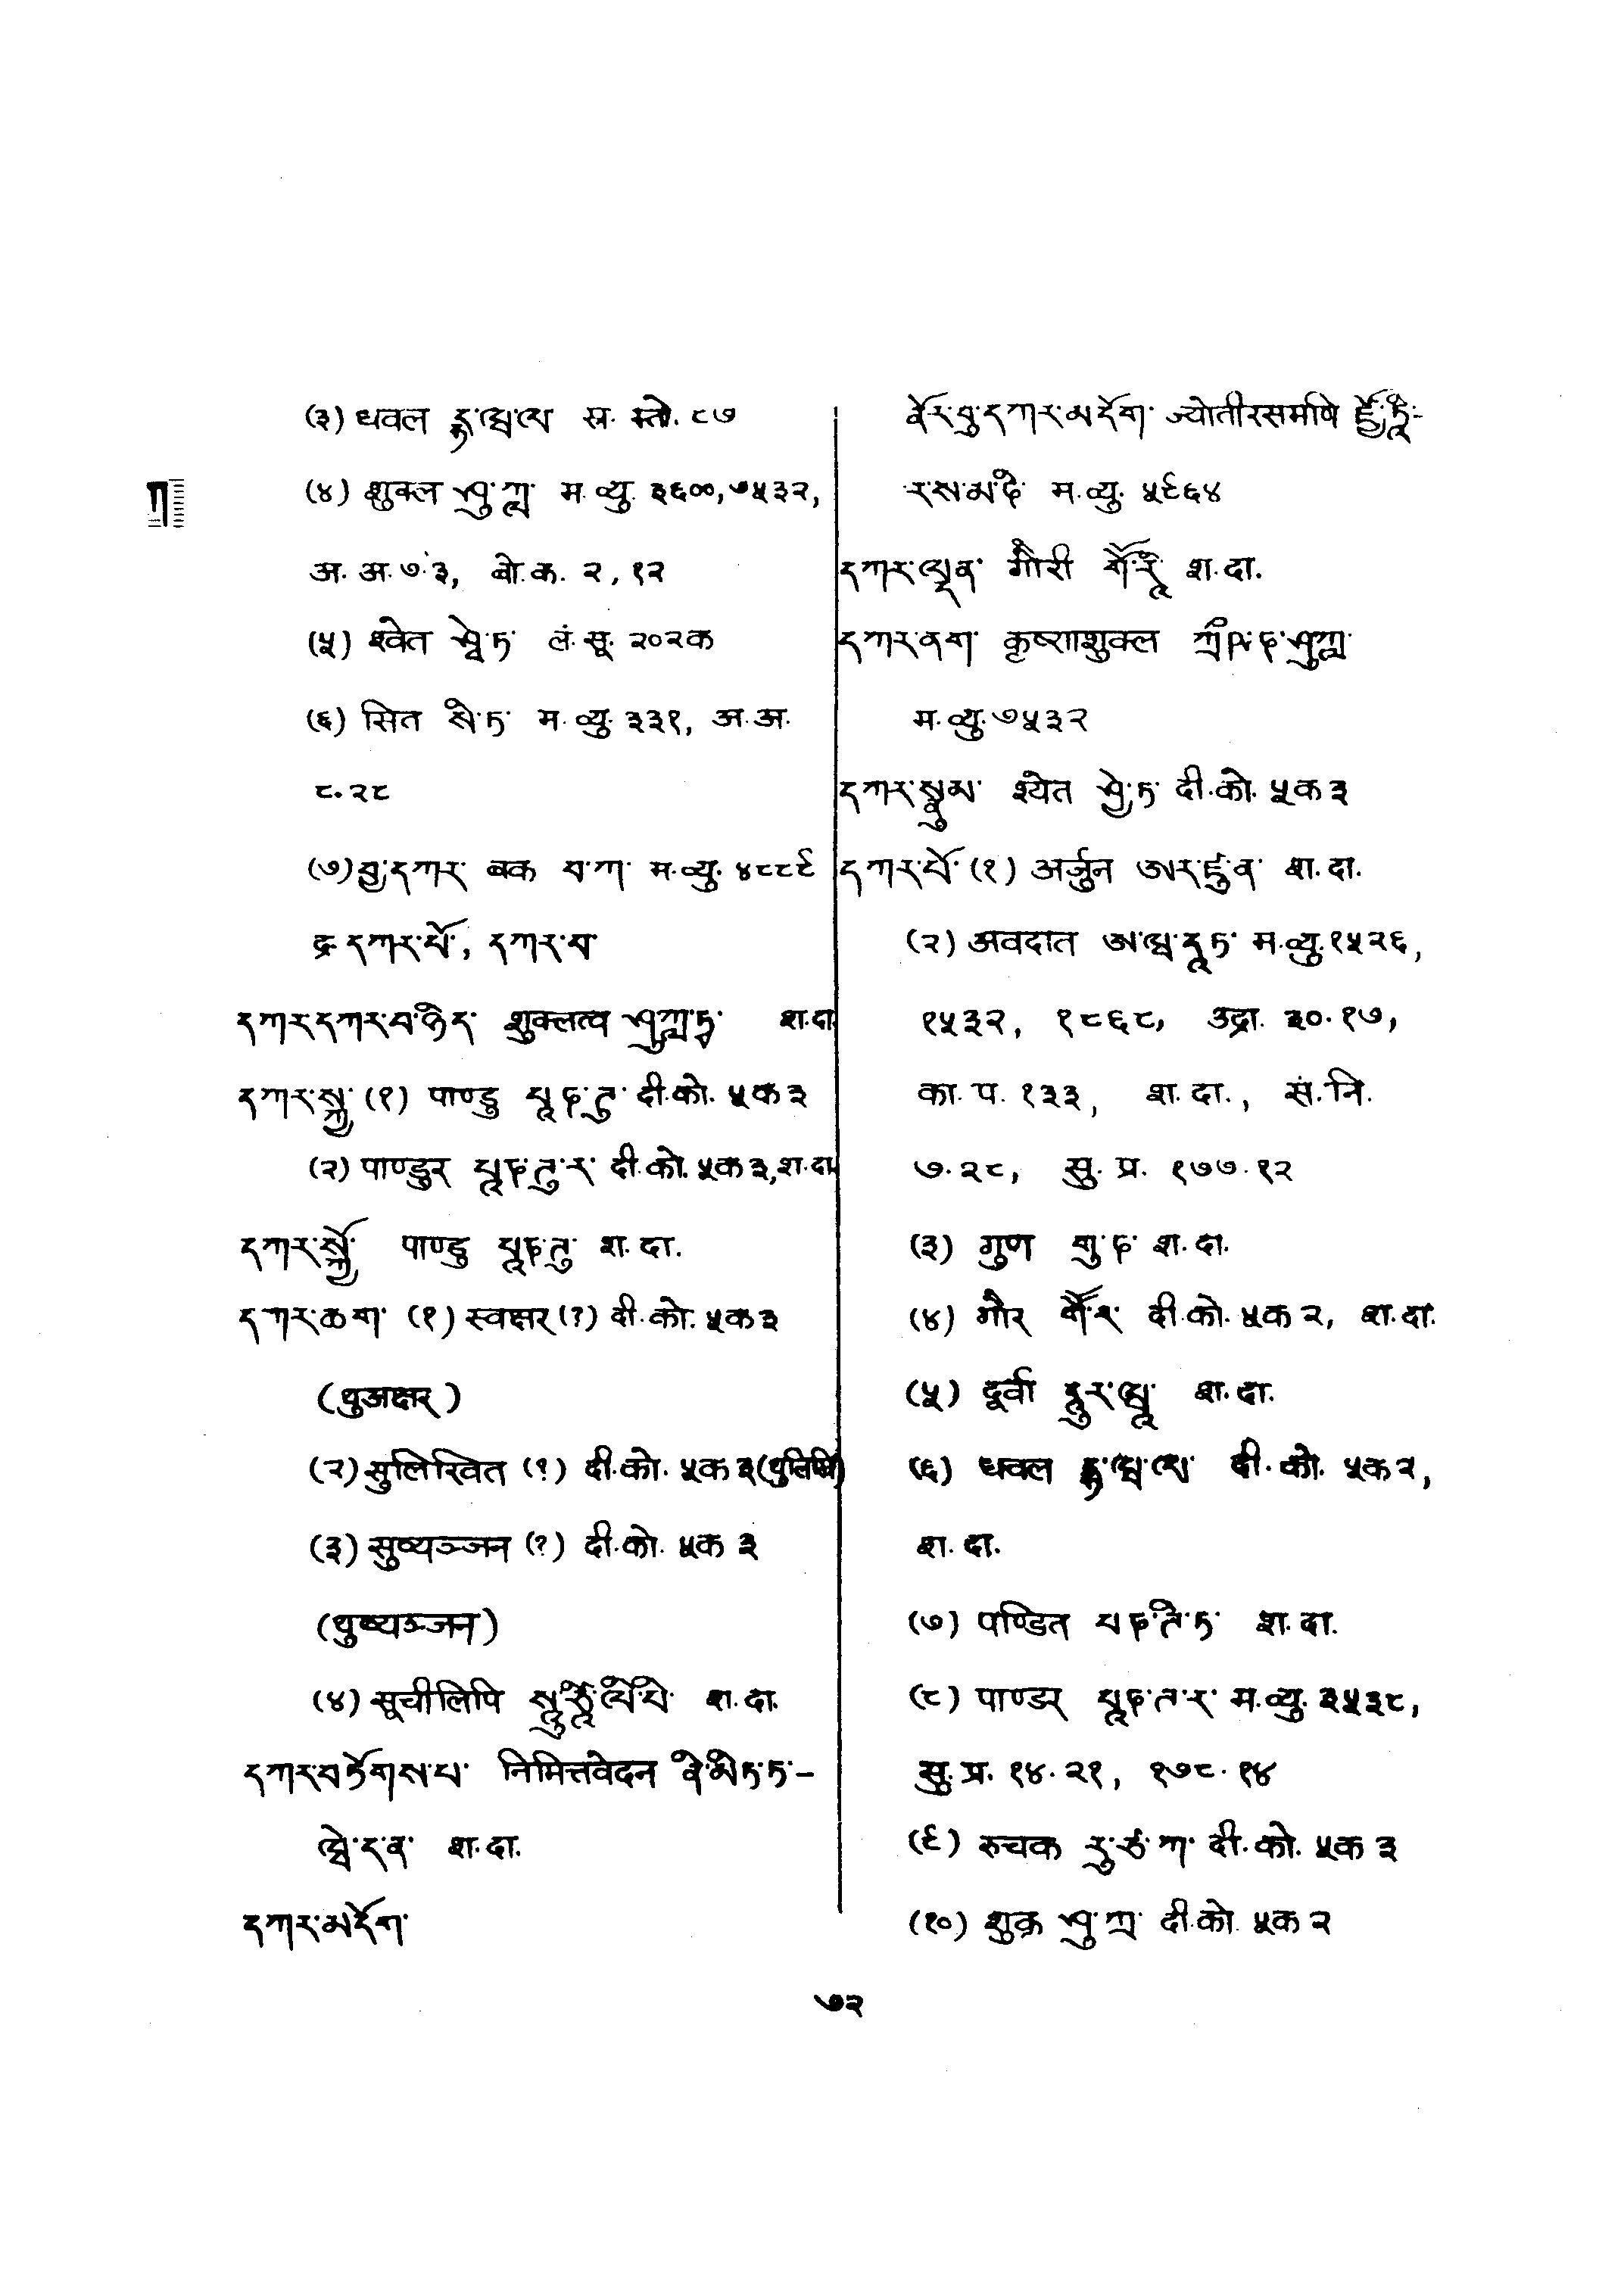 (३) धवल དྷ་ཝ་ལ स. स्तो. ८७
(४) शुक्ल ཤུ་ཀླ म. व्यु. ३६००, ७५३२,
ཀ
अ. अ. ७.३, बो. क. २, १२
(५) श्वेत ཤྭེ་ཏ लं. सू. २०२क
(६) सित སི་ཏ་ म. व्यु. ३३१, अ. अ.
८.२८
(७) བྱ་དཀར་ बक བ་ཀ་ म. व्यु. ४८८९
द्र དཀར་པོ་, དཀར་བ་
དཀར་དཀར་བ་ཉིད་ शुक्लत्व ཤུ་ཀླ་ཏྭ་ श. दा.
དཀར་སྐྱ་ (१) पाण्डु པཱཎ་ཌུ་ दी. को. ५क३
(२) पाण्डुर པཱཎ་ཌུ་ར་ दी. को. ५क३, श. दा.
དཀར་སྐྱོ་ पाण्डु པཱཎ་ཌུ་ श. दा.
དཀར་ཆག་ (१) स्वक्षर (?) दी. को. ५क३
(थुअक्षर्)
(२) सुलिखित (?) दी. को. ५क३
(३) सुव्यञ्जन (?) दी. को. ५क ३
(थुव्यञ्जन)
(४) सूचीलिपि སཱུ་ཙཱི་ལི་པི་ श. दा.
དཀར་བཏོགས་པ་ निमित्तवेदन ནི་མིཏ་ཏ་-
ཝེ་ད་ན་ श. दा.
དཀར་མདོག་
ནོར་བུ་དཀར་མདོག་ ज्योतीरसमणि ཛྱོ་ཏཱི་-
ར་ས་མ་ཎི་ म. व्यु. ५९६४
དཀར་ལྡན་ गौरी གོཽ་རཱི་ श. दा.
དཀར་ནག་ कृष्णशुक्ल ཀྲྀཥ་ཎ་ཤུཀླ་
म. व्यु. ७५३२
དཀར་སྣུམ་ श्येत ཤྱེ་ཏ་ दी. को. ५क ३
དཀར་པོ་ (१) अर्जुन ཨར་ཛུ་ན་ श. दा.
(२) अवदात ཨ་ཝ་དཱ་ཏ་ म. व्यु. १५२६,
१५३२, १८६८, उद्रा. ३०.१७,
का. प. १३३, श. दा., सं. नि.
७.२८, सु. प्र. १७७.१२
(३) गुण གུ་ཎ་ श. दा.
(४) गौर གཽ་ར་ दी. को. ५क २, श. दा.
(५) दूर्वा དཱུར་ཝཱ་ श. दा.
(६) धवल དྷ་ཝ་ལ་ दी. को. ५क २,
श. दा.
(७) पण्डित པཎ་ཌི་ཏ་ श. दा.
(८) पाण्डर པཱཎ་ཌ་ར་ म. व्यु. ३५३८,
सु. प्र. १४.२१, १७८.१४
(९) रुचक རུ་ཙ་ཀ་ दी. को. ५क ३
(१०) शुक्र ཤུ་ཀྲ་ दी. को. ५क २
७२